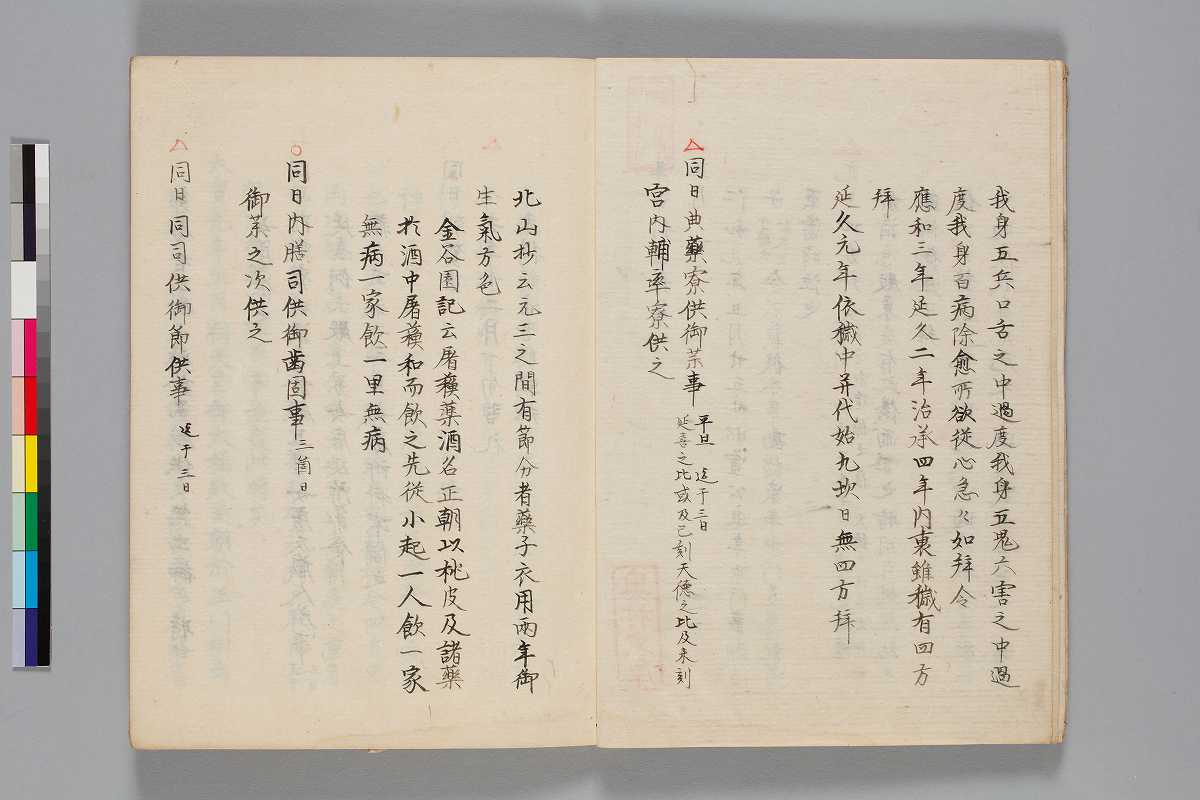 我身五兵口舌之中過度我身五鬼六害之中過
度我身百病除愈所欲從心急々如拜令
應和三年延久二年治承四年内裏雖穢有四方
拜
延久元年依穢中并代始九坎日無四方拜
同日典藥寮供御茶事
平旦 迄于三日
延喜之比或及已刻天德之比及未刻
宮内輔率寮供之
北山抄云元三之間有節分者藥子衣用兩年御
生氣方色
金谷園記云屠蘇藥酒名正朝以桃皮及諸藥
於酒中屠蘇和而飲之先從小起一人飲一家
無病一家飲一里無病
同日内膳司供御歯固事 三箇日
御茶之次供之
同日同司供御節供事 迄于三日